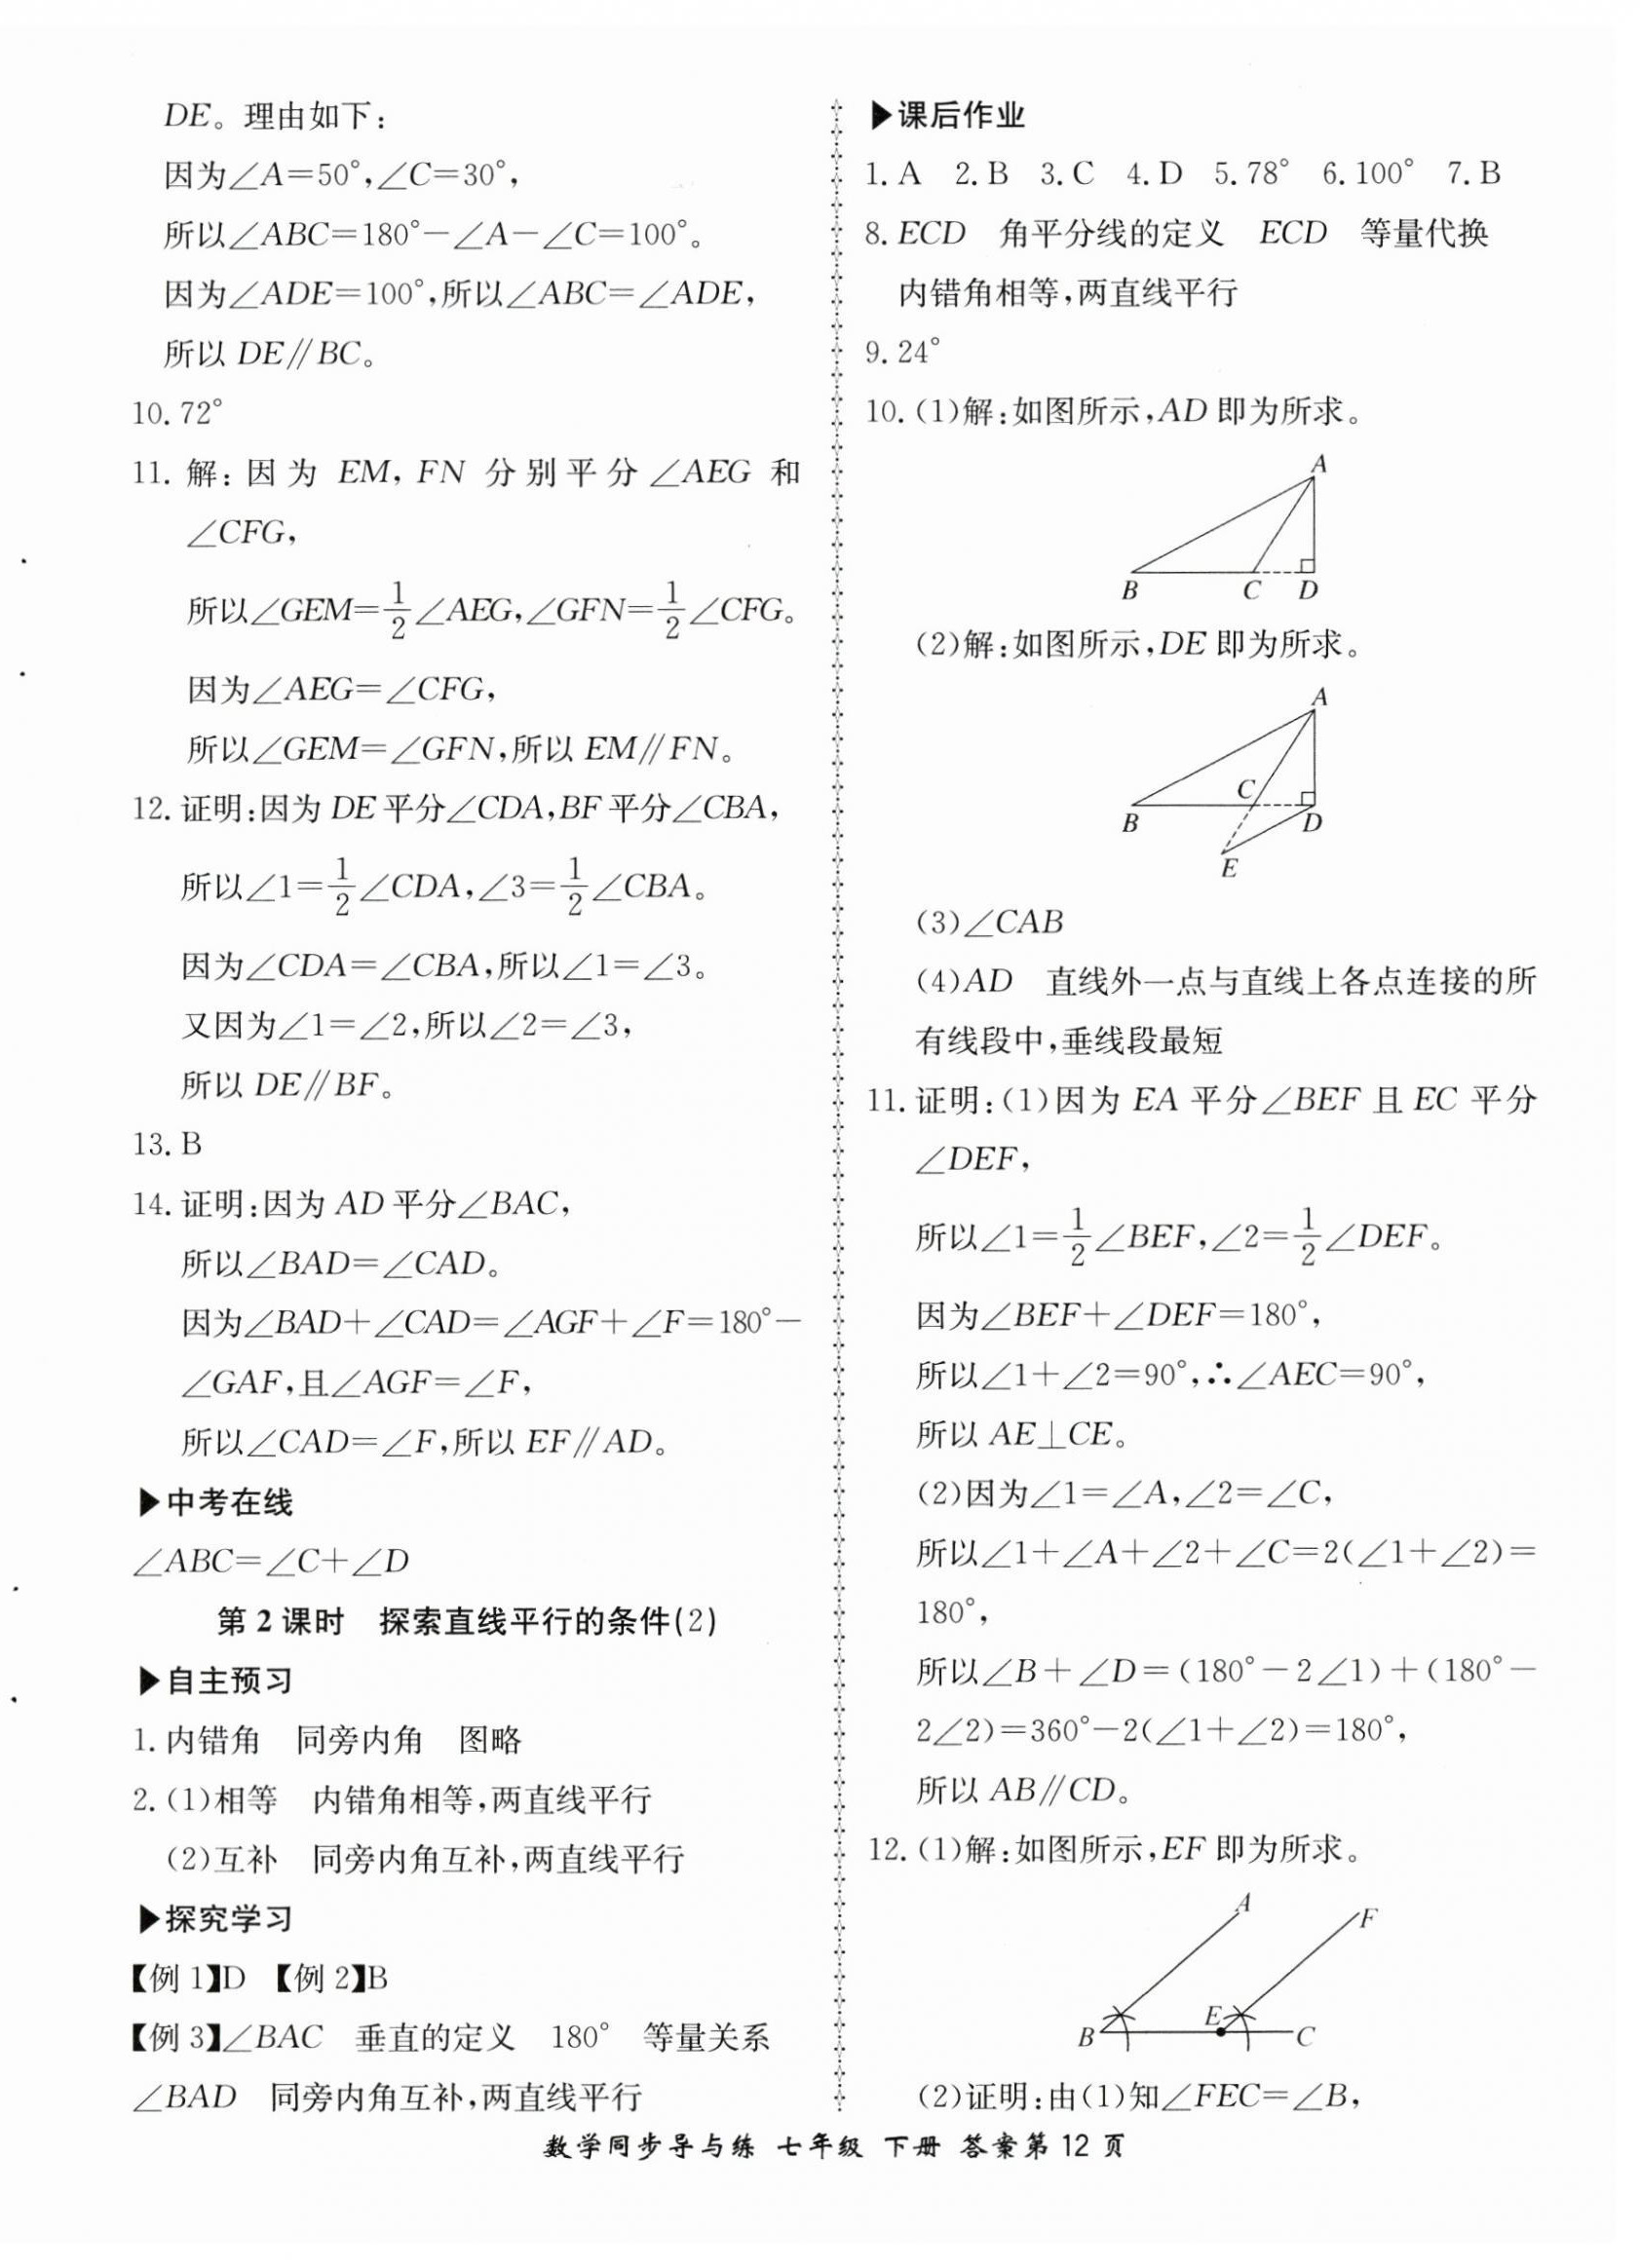 DE。理由如下：
因为∠A=50°,∠C=30°,
所以∠ABC=180°-∠A-∠C=100°。
因为∠ADE=100°,所以∠ABC=∠ADE,
所以 DE∥BC。
10. 72°
11. 解:因为 EM, FN 分别平分∠AEG 和
∠CFG,
所以∠GEM=1/2∠AEG,∠GFN=1/2∠CFG。
因为∠AEG=∠CFG,
所以∠GEM=∠GFN,所以 EM∥FN。
12. 证明:因为 DE 平分∠CDA,BF 平分∠CBA,
所以∠1=1/2∠CDA,∠3=1/2∠CBA。
因为∠CDA=∠CBA,所以∠1=∠3。
又因为∠1=∠2,所以∠2=∠3,
所以 DE∥BF。
13. B
14. 证明:因为 AD 平分∠BAC,
所以∠BAD=∠CAD。
因为∠BAD+∠CAD=∠AGF+∠F=180°-
∠GAF,且∠AGF=∠F,
所以∠CAD=∠F,所以 EF∥AD。
▶中考在线
∠ABC=∠C+∠D
第 2 课时 探索直线平行的条件(2)
▶自主预习
1. 内错角 同旁内角 图略
2. (1)相等 内错角相等,两直线平行
(2)互补 同旁内角互补,两直线平行
▶探究学习
【例 1】D 【例 2】B
【例 3】∠BAC 垂直的定义 180° 等量关系
∠BAD 同旁内角互补,两直线平行
▶课后作业
1. A 2. B 3. C 4. D 5. 78° 6. 100° 7. B
8. ECD 角平分线的定义 ECD 等量代换
内错角相等,两直线平行
9. 24°
10. (1)解:如图所示,AD 即为所求。
A
B C D
(2)解:如图所示,DE 即为所求。
A
C
B D
E
(3)∠CAB
(4)AD 直线外一点与直线上各点连接的所
有线段中,垂线段最短
11. 证明:(1)因为 EA 平分∠BEF 且 EC 平分
∠DEF,
所以∠1=1/2∠BEF,∠2=1/2∠DEF。
因为∠BEF+∠DEF=180°,
所以∠1+∠2=90°,∴∠AEC=90°,
所以 AE⊥CE。
(2)因为∠1=∠A,∠2=∠C,
所以∠1+∠A+∠2+∠C=2(∠1+∠2)=
180°,
所以∠B+∠D=(180°-2∠1)+(180°-
2∠2)=360°-2(∠1+∠2)=180°,
所以 AB∥CD。
12. (1)解:如图所示,EF 即为所求。
A F
B E C
(2)证明:由(1)知∠FEC=∠B,
数学同步导与练 七年级 下册 答案第 12 页